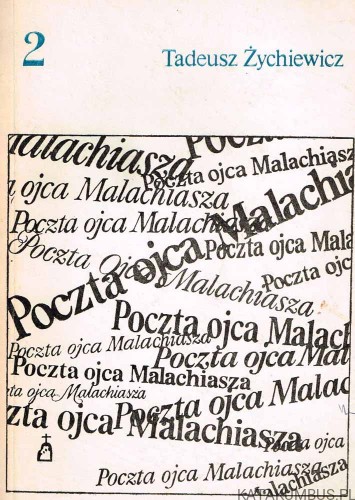 2
Tadeusz Żychiewicz
Malachiasza
Poczta
Poczta ojca Malachiasza
ojca Malachiasza
Poczta ojca Malachia
Poczta ojca Malachia
Poczta ojca Mala
Poczta Ojca Malachiasza
Poczta ojc
Poczta ojca Malach
Poczta ojca Malachiasza
Poczta ojca Mal
Poczta ojca Malachiasza
ta ojca Malachiasza
Poczta ojca Malac
zta ojca Malachiasza
Poczta ojca
Poczta ojca Malachiasza
Malachiasza
KATAKUMBUS.PL